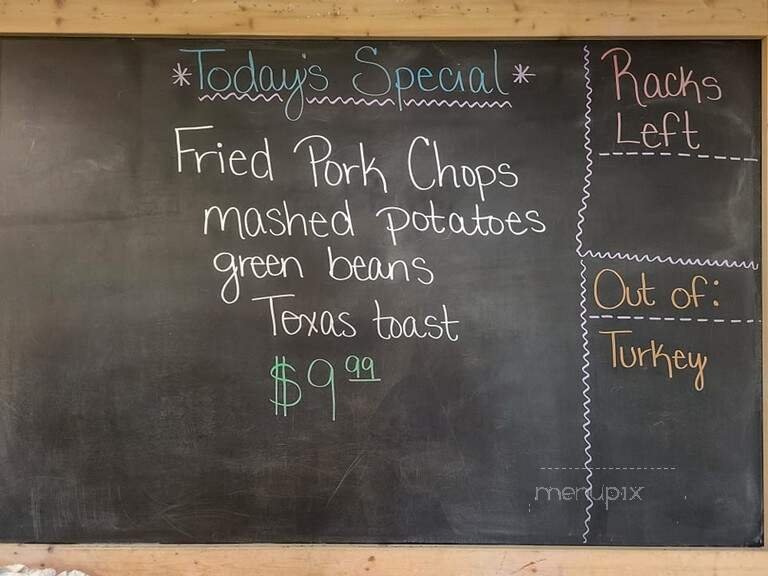 *Today's Special*
Fried Pork Chops
mashed potatoes
green beans
Texas toast
$9.99
Racks
Left
Out of:
Turkey
menupix